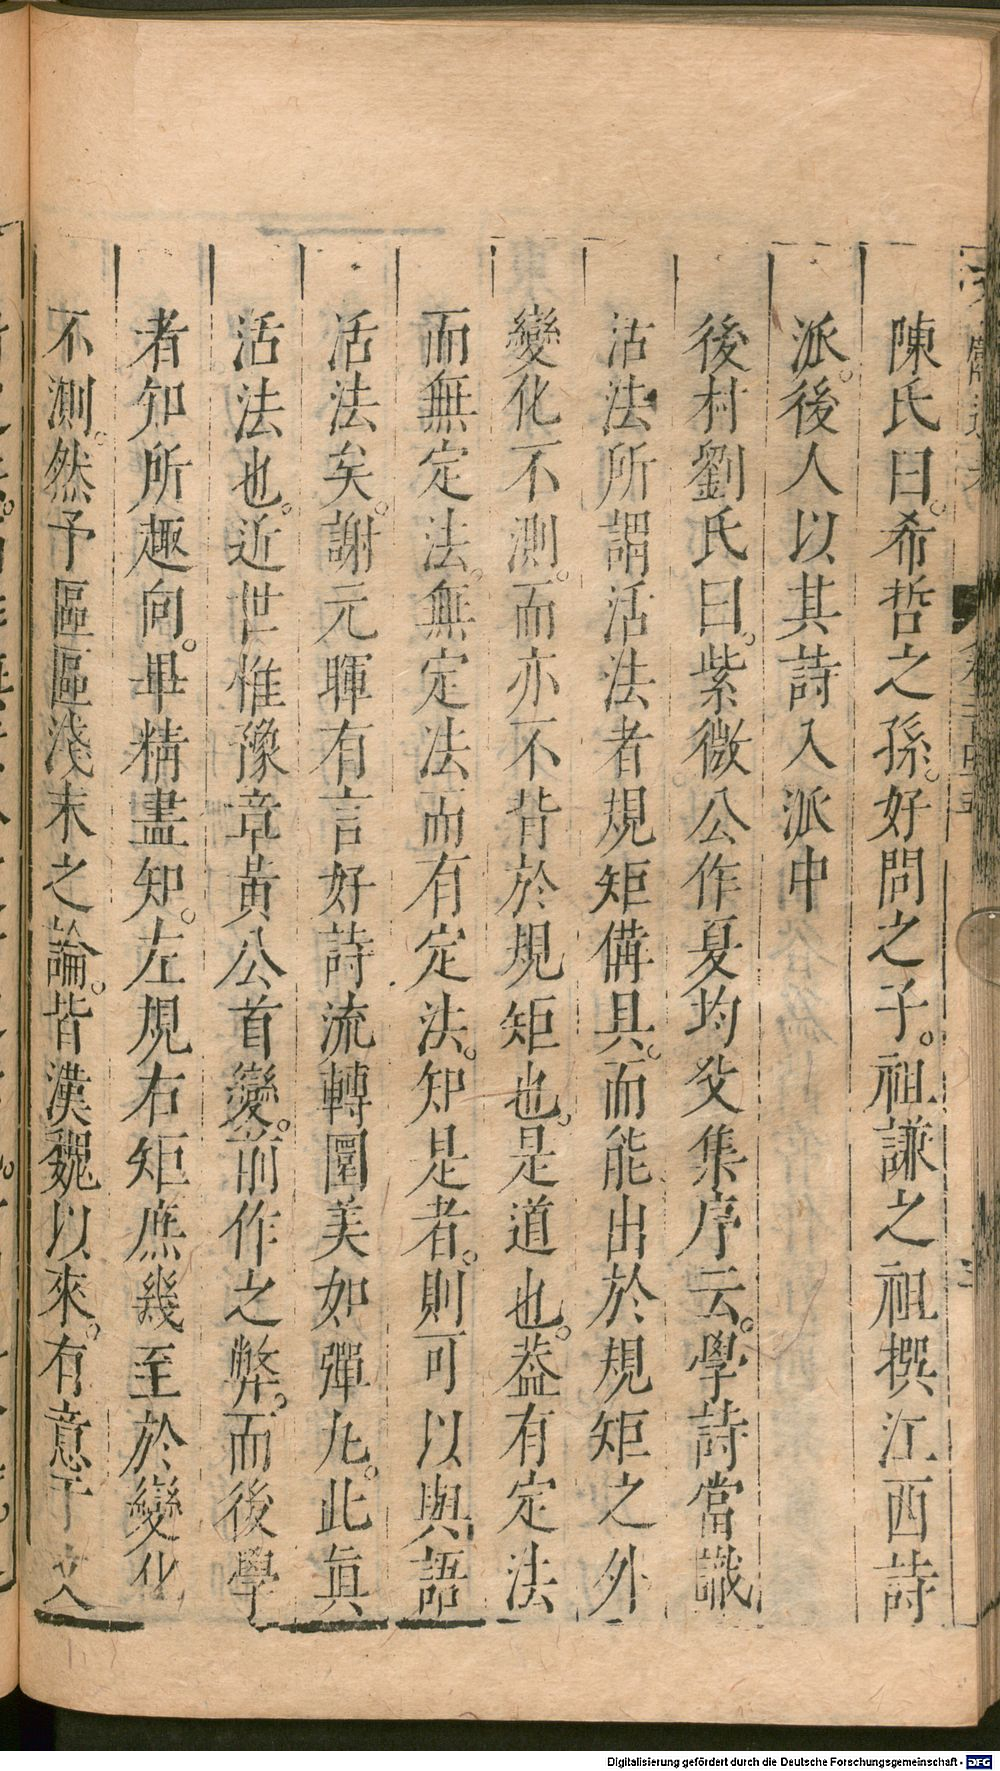 陳氏曰。希哲之孫。好問之子。祖謙之祖撰江西詩
派。後人以其詩入派中
後村劉氏曰。紫微公作夏均父集序云。學詩當識
活法所謂活法者規矩備具。而能出於規矩之外
變化不測。而亦不背於規矩也。是道也。葢有定法
而無定法。無定法而有定法。知是者。則可以與語
活法矣。謝元暉有言好詩流轉圜美如彈丸。此眞
活法也。近世惟豫章黃公首變。前作之弊。而後學
者知所趣向。畢精盡知。左規右矩庶幾至於變化
不測。然予區區淺末之論。皆漢魏以來。有意于文
Digitalisierung gefördert durch die Deutsche Forschungsgemeinschaft - DFG